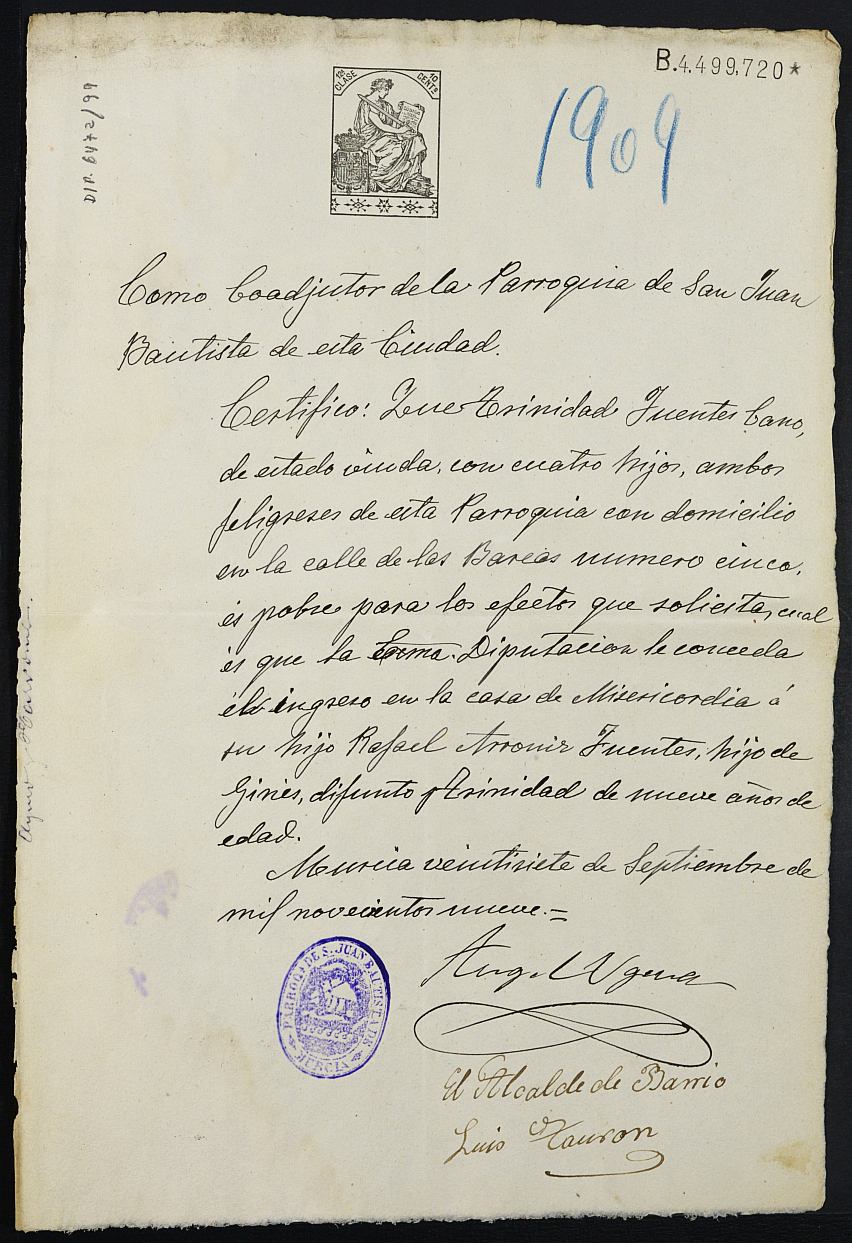 B.4,499,720★
12ª CLASE
10 CENTS
1909
DIP. 6472/46
Como Coadjutor de la Parroquia de San Juan
Bautista de esta Ciudad.
Certifico: Que Trinidad Fuentes Cano,
de estado viuda, con cuatro hijos, ambos
feligreses de esta Parroquia con domicilio
en la calle de las Barcas numero cinco,
es pobre para los efectos que solicita, cual
es que la Excma. Diputacion le conceda
el ingreso en la casa de Misericordia á
su hijo Rafael Arroniz Fuentes, hijo de
Ginés, difunto y Trinidad de nueve años de
edad.
Murcia veintisiete de Septiembre de
mil novecientos nueve.=
Angel
PARROQª DE S. JUAN BAUTISTA DE
MURCIA
El Alcalde de Barrio
Luis